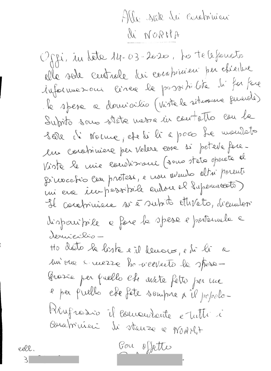 Alla sede dei carabinieri
di NORMA
Oggi, in data 14-03-2020, ho telefonato
alla sede centrale dei carabinieri per chiedere
informazioni circa la possibilità di far fare
la spesa a domicilio (vista la situazione
Subito sono stata messa in contatto con la
sede di Norma, che di lì a poco ha mandato
un carabiniere per vedere cosa si poteva fare.
Vista la mia condizione (sono stata operata al
ginocchio con protesi, e non avendo altri parenti
mi era impossibile andare al supermercato)
Il carabiniere si è subito attivato,
disponibile a fare la spesa e portarmela a
domicilio-
Ho dato la lista e il denaro, e di lì a
un'ora e mezza ho ricevuto la spesa-
Grazie per quello che avete fatto per me
e per quello che fate sempre x il popolo-
Ringrazio il comandante e tutti i
carabinieri di stanza a NORMA
Con affetto
cell.
3